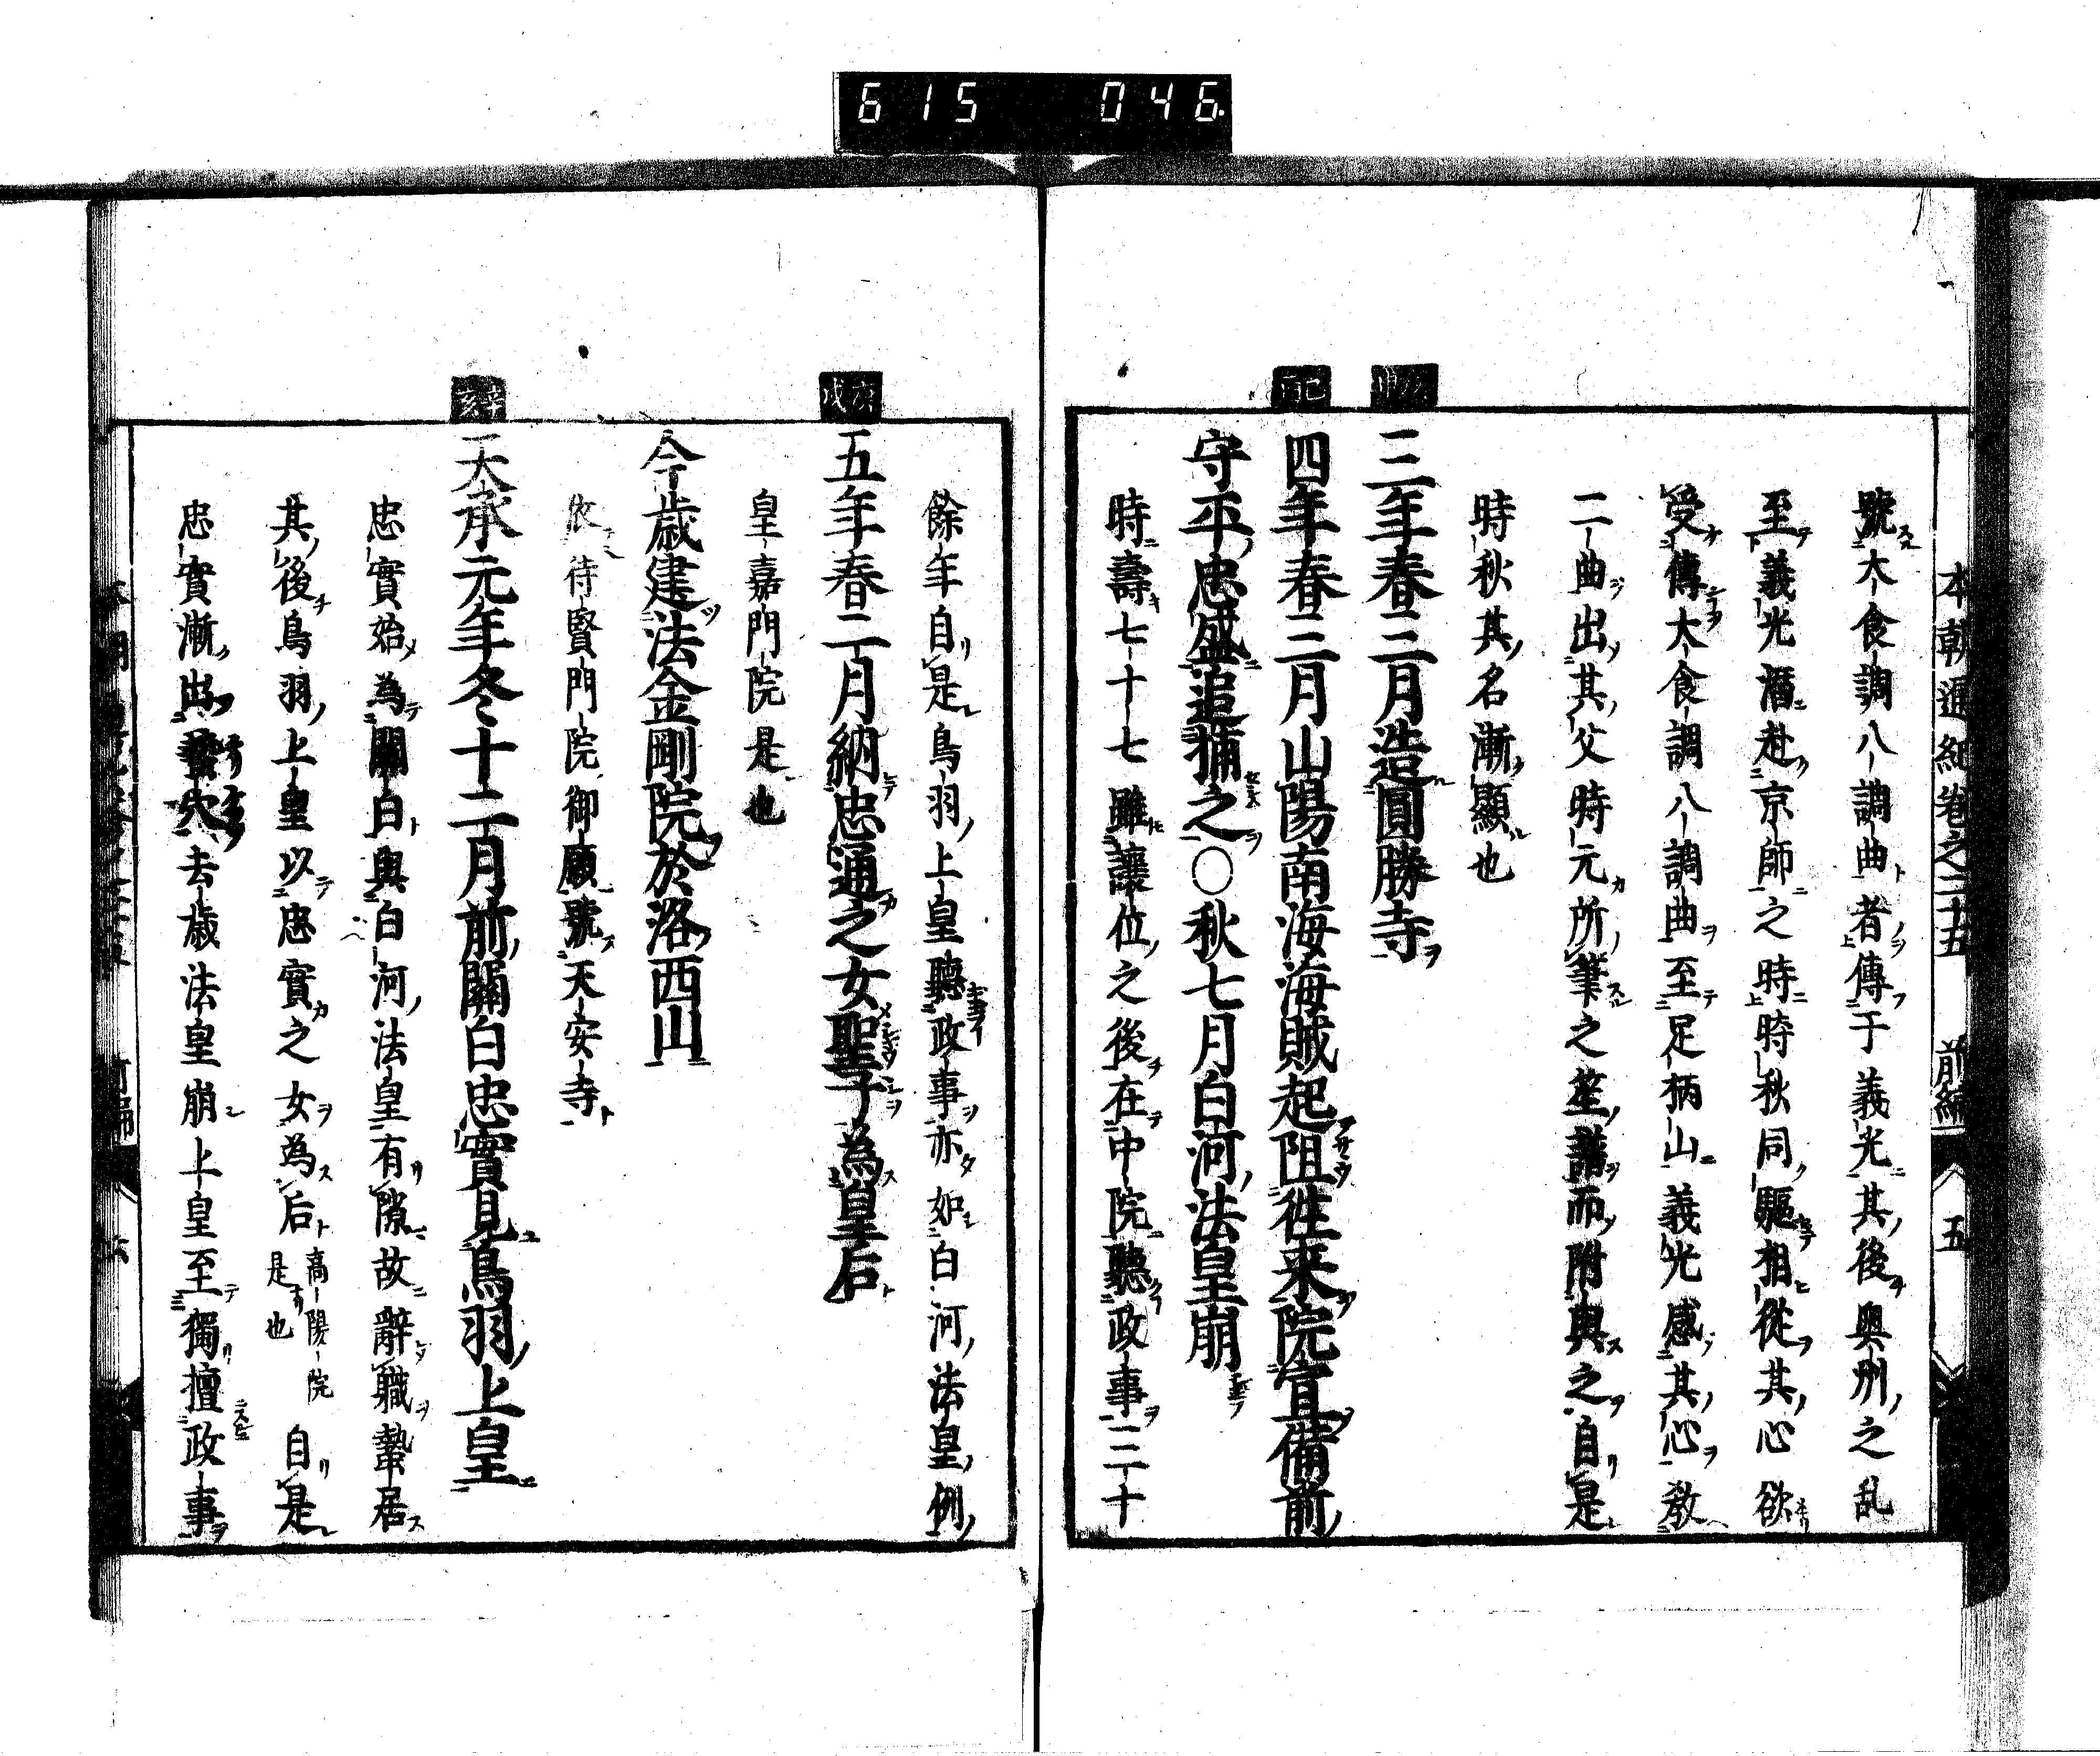 615 046
本朝通紀卷之二十五 前編 五
號大食調八調曲者傳于義光其後奧州之乱
至義光潛赴京師之時時秋同驅相從其心欲
受傳大食調八調曲至足柄山義光感其心教
二曲出其父時元所筆之荃譜而附與之自是
時秋其名漸顯也
三年春三月造圓勝寺
己酉
四年春三月山陽南海海賊起阻往来院宣備前
守平忠盛追捕之〇秋七月白河法皇崩
時壽七十七雖讓位之後在中院聽政事三十
餘年自是鳥羽上皇聽政事亦如白河法皇例
庚戌
五年春二月納忠通之女聖子為皇后
皇嘉門院是也
今歲建法金剛院於洛西山
依待賢門院御願號天安寺
辛亥
天承元年冬十二月前關白忠實見鳥羽上皇
忠實始為關白與白河法皇有隙故辭職蟄居
其後鳥羽上皇以忠實之女為后高陽院是也自是
忠實漸出蟄穴去歲法皇崩上皇至獨擅政事
前編 六